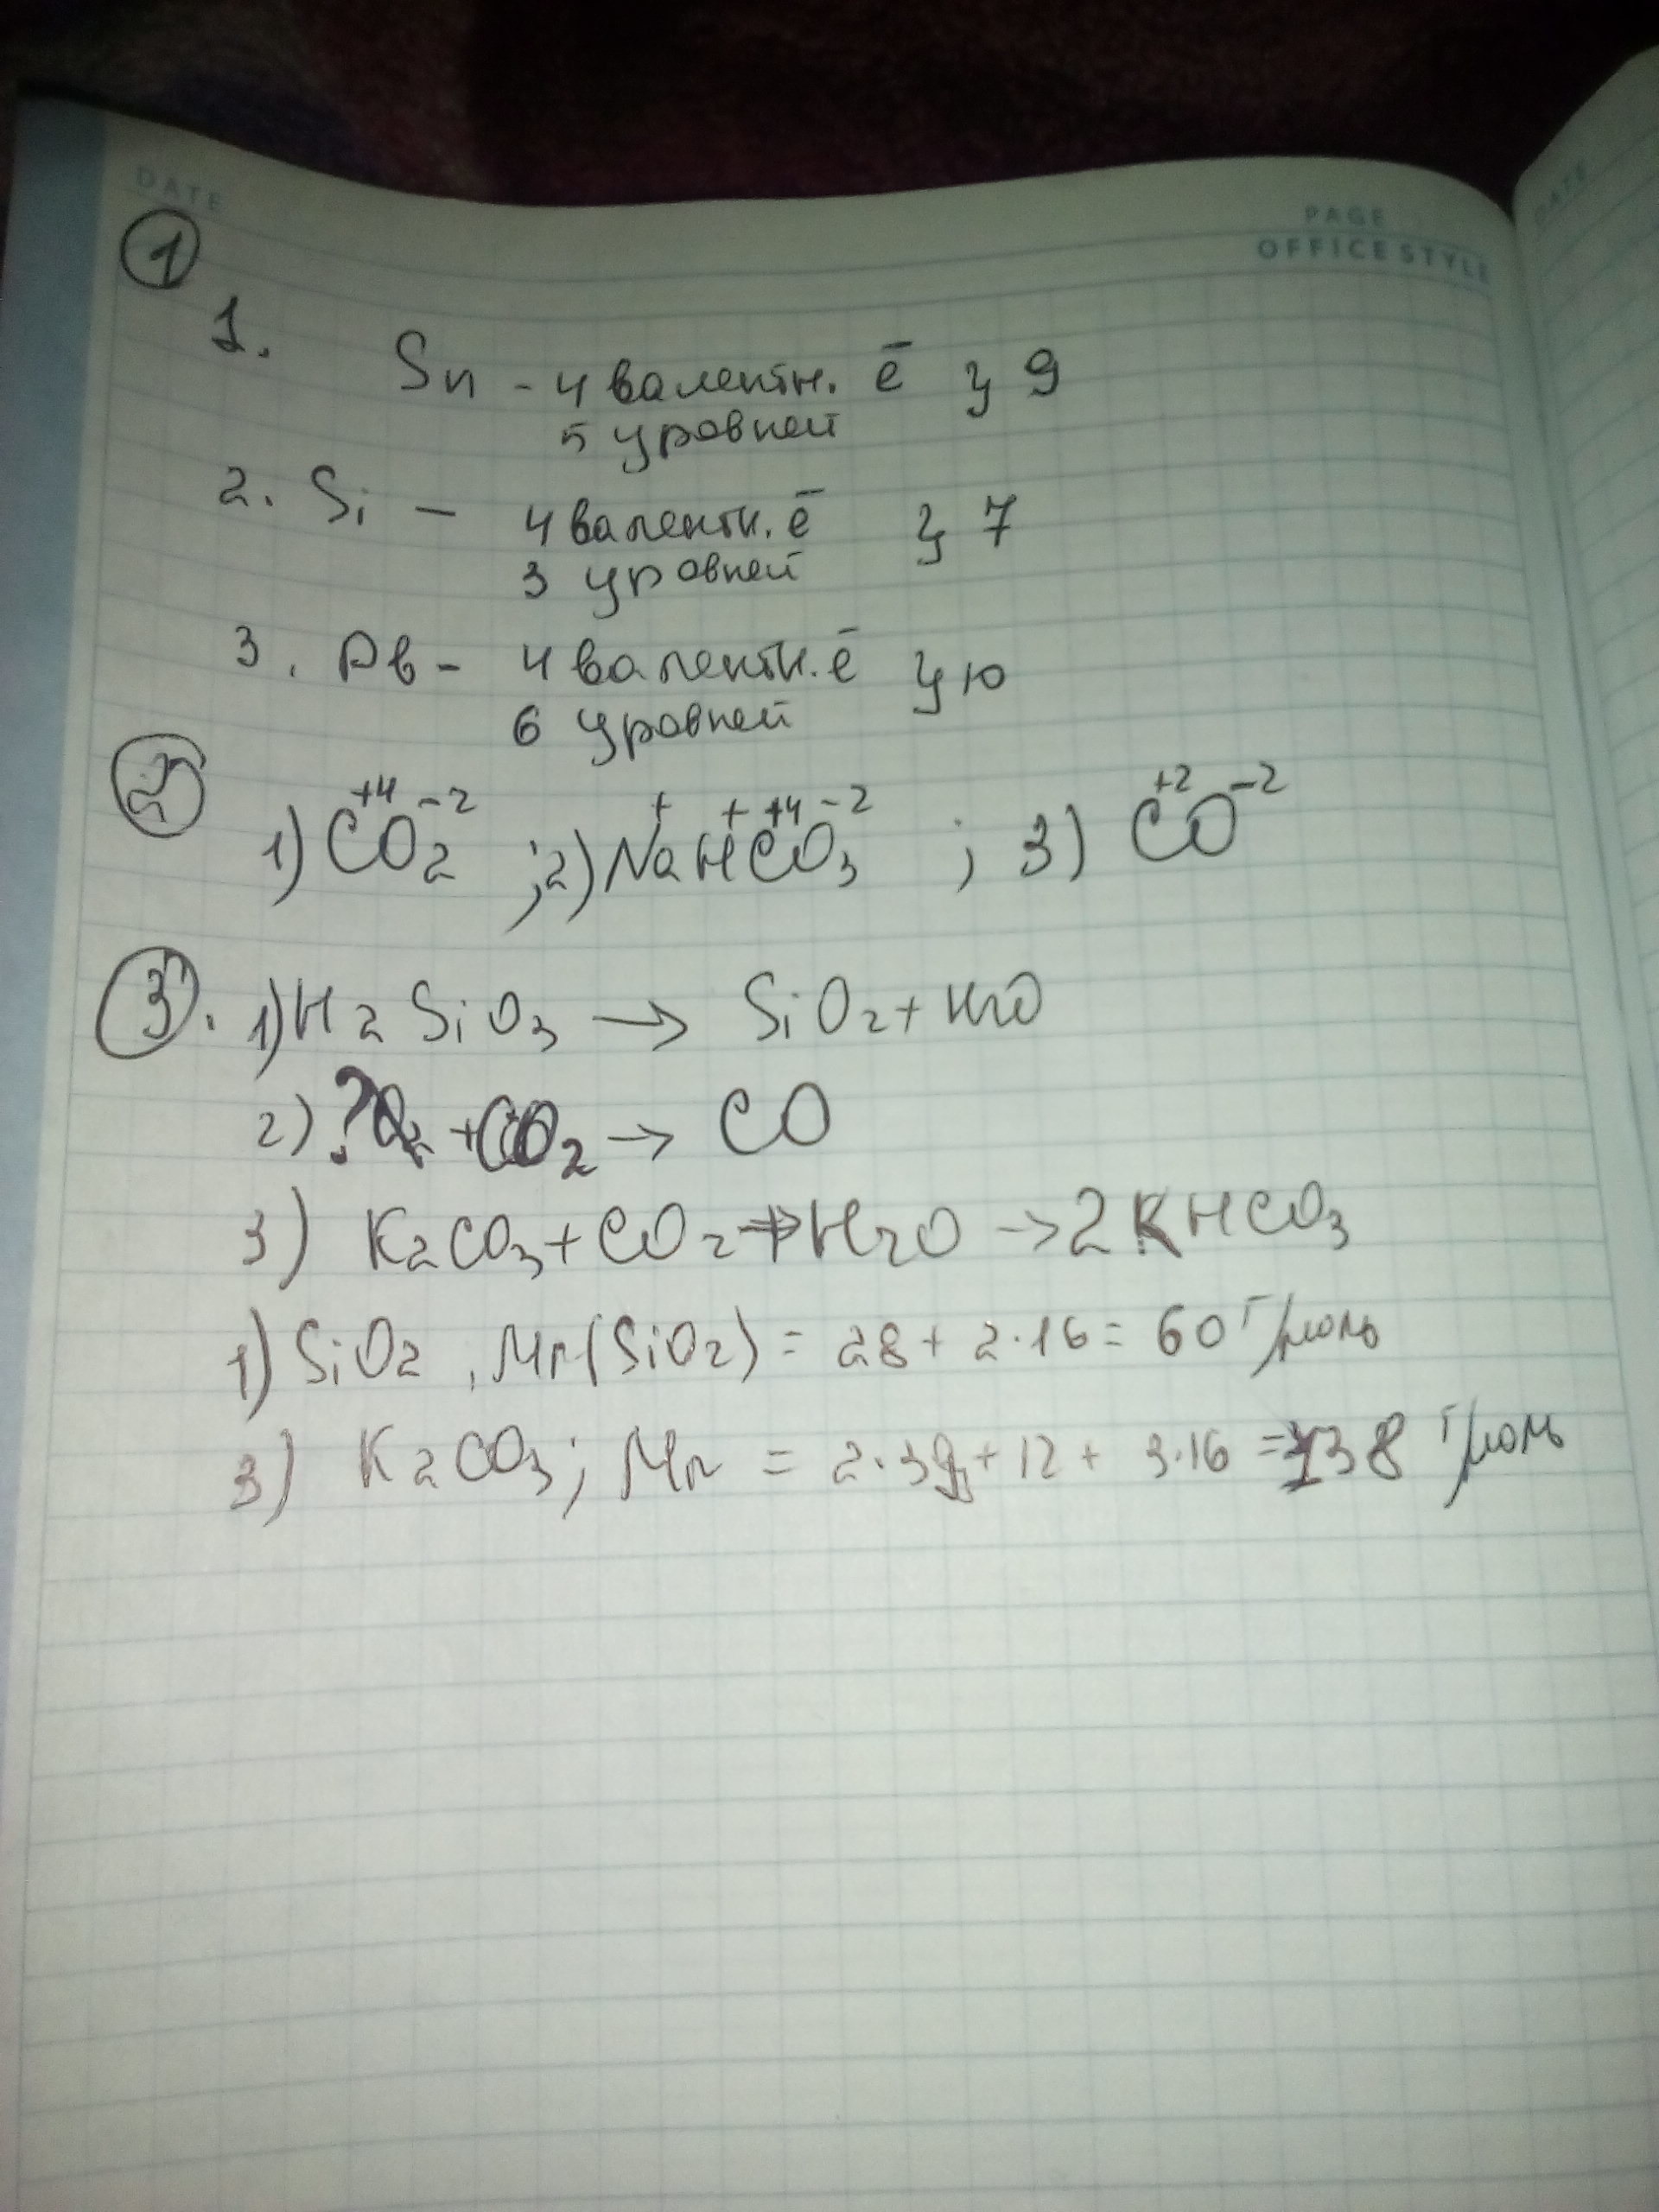 DATE
PAGE
OFFICE STYLE
DATE
1
1. Sn - 4 валентн. ē } 9
5 уровней
2. Si - 4 валентн. ē } 7
3 уровней
3. Pb - 4 валентн. ē } 10
6 уровней
2
1) C⁺⁴O₂⁻² ; 2) Na⁺H⁺C⁺⁴O₃⁻² ; 3) C⁺²O⁻²
3. 1) H₂SiO₃ → SiO₂ + H₂O
2) ? + CO₂ → CO
3) K₂CO₃ + CO₂ + H₂O → 2KHCO₃
1) SiO₂, Mr(SiO₂) = 28 + 2·16 = 60 г/моль
3) K₂CO₃; Mr = 2·39 + 12 + 3·16 = 138 г/моль